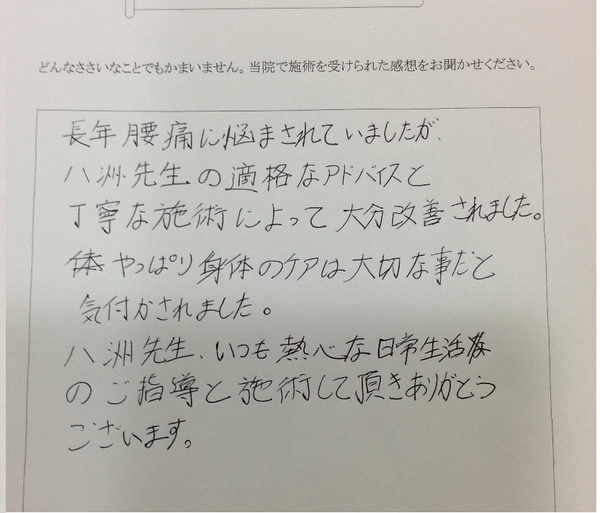 どんなささいなことでもかまいません。当院で施術を受けられた感想をお聞かせください。
長年腰痛に悩まされていましたが、
八洲先生の適格なアドバイスと
丁寧な施術によって大分改善されました。
やっぱり身体のケアは大切な事だと
気付かされました。
八洲先生、いつも熱心な日常生活
のご指導と施術して頂きありがとう
ございます。